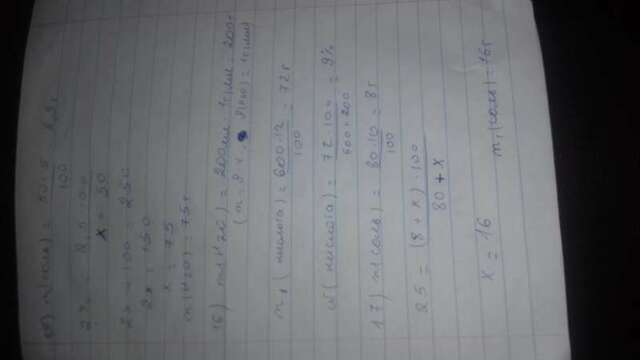 15) m(соли) = 50·5 / 100 = 2,5г
2% = 2,5·100 / x+50
2x + 100 = 250
2x = 150
x = 75
m(H2O) = 75г
16) m(H2O) = 200мл · 1г/мл = 200г
(m = 8·V, 8(H2O) = 1г/мл)
m1(кислота) = 600·12 / 100 = 72г
ω(кислота) = 72·100 / 600+200 = 9%
17) m(соль) = 80·10 / 100 = 8г
25 = (8+x)·100 / 80+x
x = 16 m1(соль) = 16г